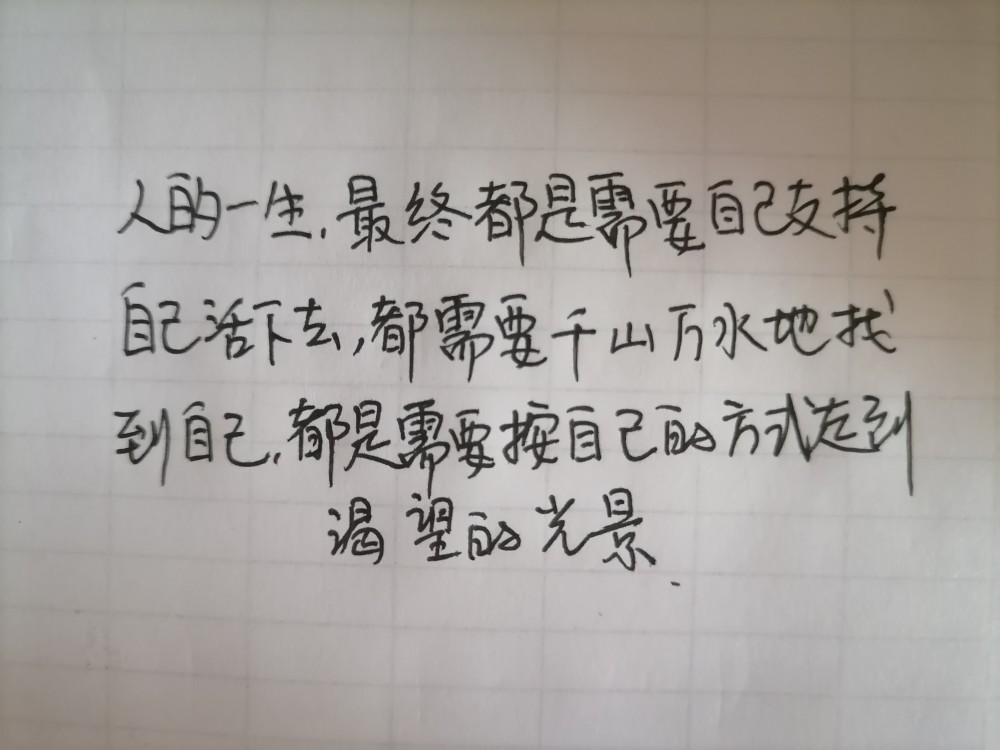 人的一生,最终都是需要自己支持
自己活下去,都需要千山万水地找
到自己,都是需要按自己的方式走到
渴望的光景.